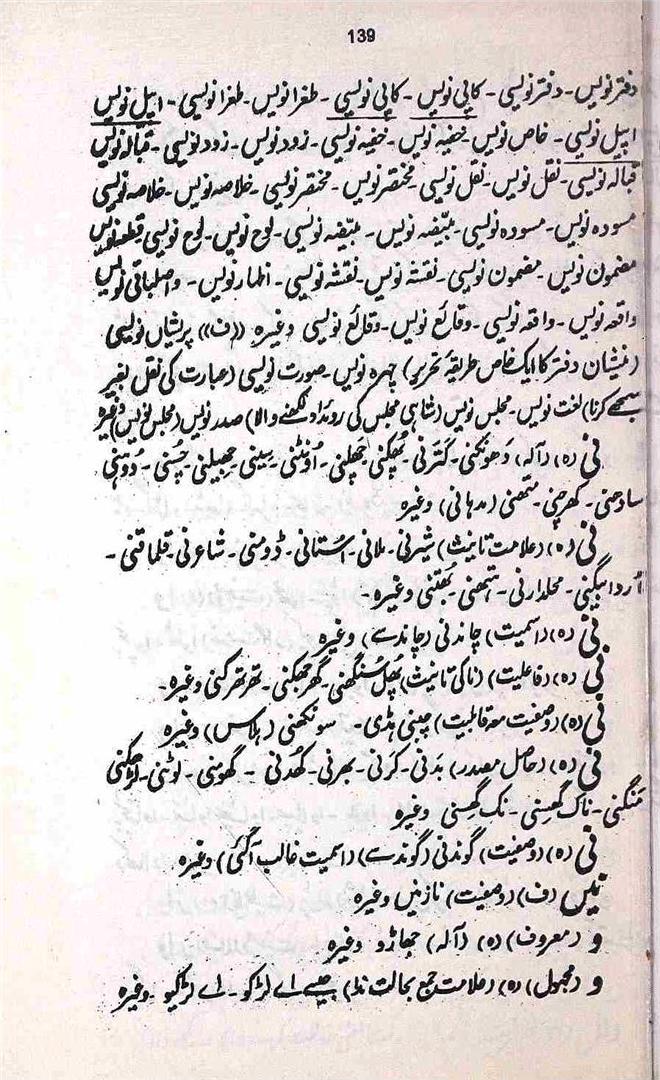 139
دفتر نویس۔ دفتر نویسی۔ کاپی نویس۔ کاپی نویسی۔ طغرا نویس۔ طغرا نویسی۔ اپیل نویس
اپیل نویسی۔ خاص نویس۔ خفیہ نویس۔ خفیہ نویسی۔ زود نویس۔ زود نویسی۔ قبالہ نویس
قبالہ نویسی۔ نقل نویس۔ نقل نویسی۔ مختصر نویس۔ مختصر نویسی۔ خلاصہ نویس۔ خلاصہ نویسی
مسودہ نویس۔ مسودہ نویسی۔ مبیّضہ نویس۔ مبیّضہ نویسی۔ لوح نویس۔ لوح نویسی قطعہ نویس
مضمون نویس۔ مضمون نویسی۔ نقشہ نویس۔ نقشہ نویسی۔ اظہار نویس۔ واصلباقی نویس
واقعہ نویس۔ واقعہ نویسی۔ وقائع نویس۔ وقائع نویسی وغیرہ ((ف)) پریشاں نویسی
(منشیان دفتر کا ایک خاص طریقۂ تحریر) چہرہ نویس۔ صورت نویسی (عبارت کی نقل بغیر
سمجھے کرنا) لغت نویس۔ مجلس نویس (شاہی مجلس کی روئداد لکھنے والا) صدر نویس (مجلس نویس) وغیرہ
نی (ہ) (آلہ) دھونکنی۔ کترنی۔ پھکنی چھلنی۔ اُونٹنی۔ سینی۔ چھیلنی۔ چُسنی۔ دُوہنی
سادھنی۔ کھرچنی۔ متھنی (مدہانی) وغیرہ
نی (ہ) (علامت تانیث) شیرنی۔ ملانی۔ اُستانی۔ ڈومنی۔ شاعرنی۔ قلماقنی۔
اُردابیگنی۔ محلدارنی۔ اتھنی۔ بُھتنی وغیرہ۔
نی (ہ) (اسمیت) چاندنی (چاند سے) وغیرہ
نی (ہ) (فاعلیت) (نا کی تانیث) پھل سُنگھنی۔ گھر جھکنی۔ تھر تھرکنی وغیرہ۔
نی (ہ) (وصفیت معہ قابلیت) چبنی ہڈی۔ سونگھنی (ہلاس) وغیرہ
نی (ہ) (حاصل مصدر) بدنی۔ کرنی۔ بھرنی۔ کھُدنی۔ گھومنی۔ لوٹنی۔ لڑھکنی
منگنی۔ ناک گھسنی۔ نک گھسنی وغیرہ
نی (ہ) (وصفیت) گوندنی (گوند سے) (اسمیت غالب آگئی) وغیرہ۔
نیں (ف) (وصفیت) نازنیں وغیرہ
و (معروف) (ہ) (آلہ) جھاڑو وغیرہ
و (مجہول) (ہ) (علامت جمع بحالت ندا) جیسے اے لڑکو۔ اے لڑکیو۔ وغیرہ